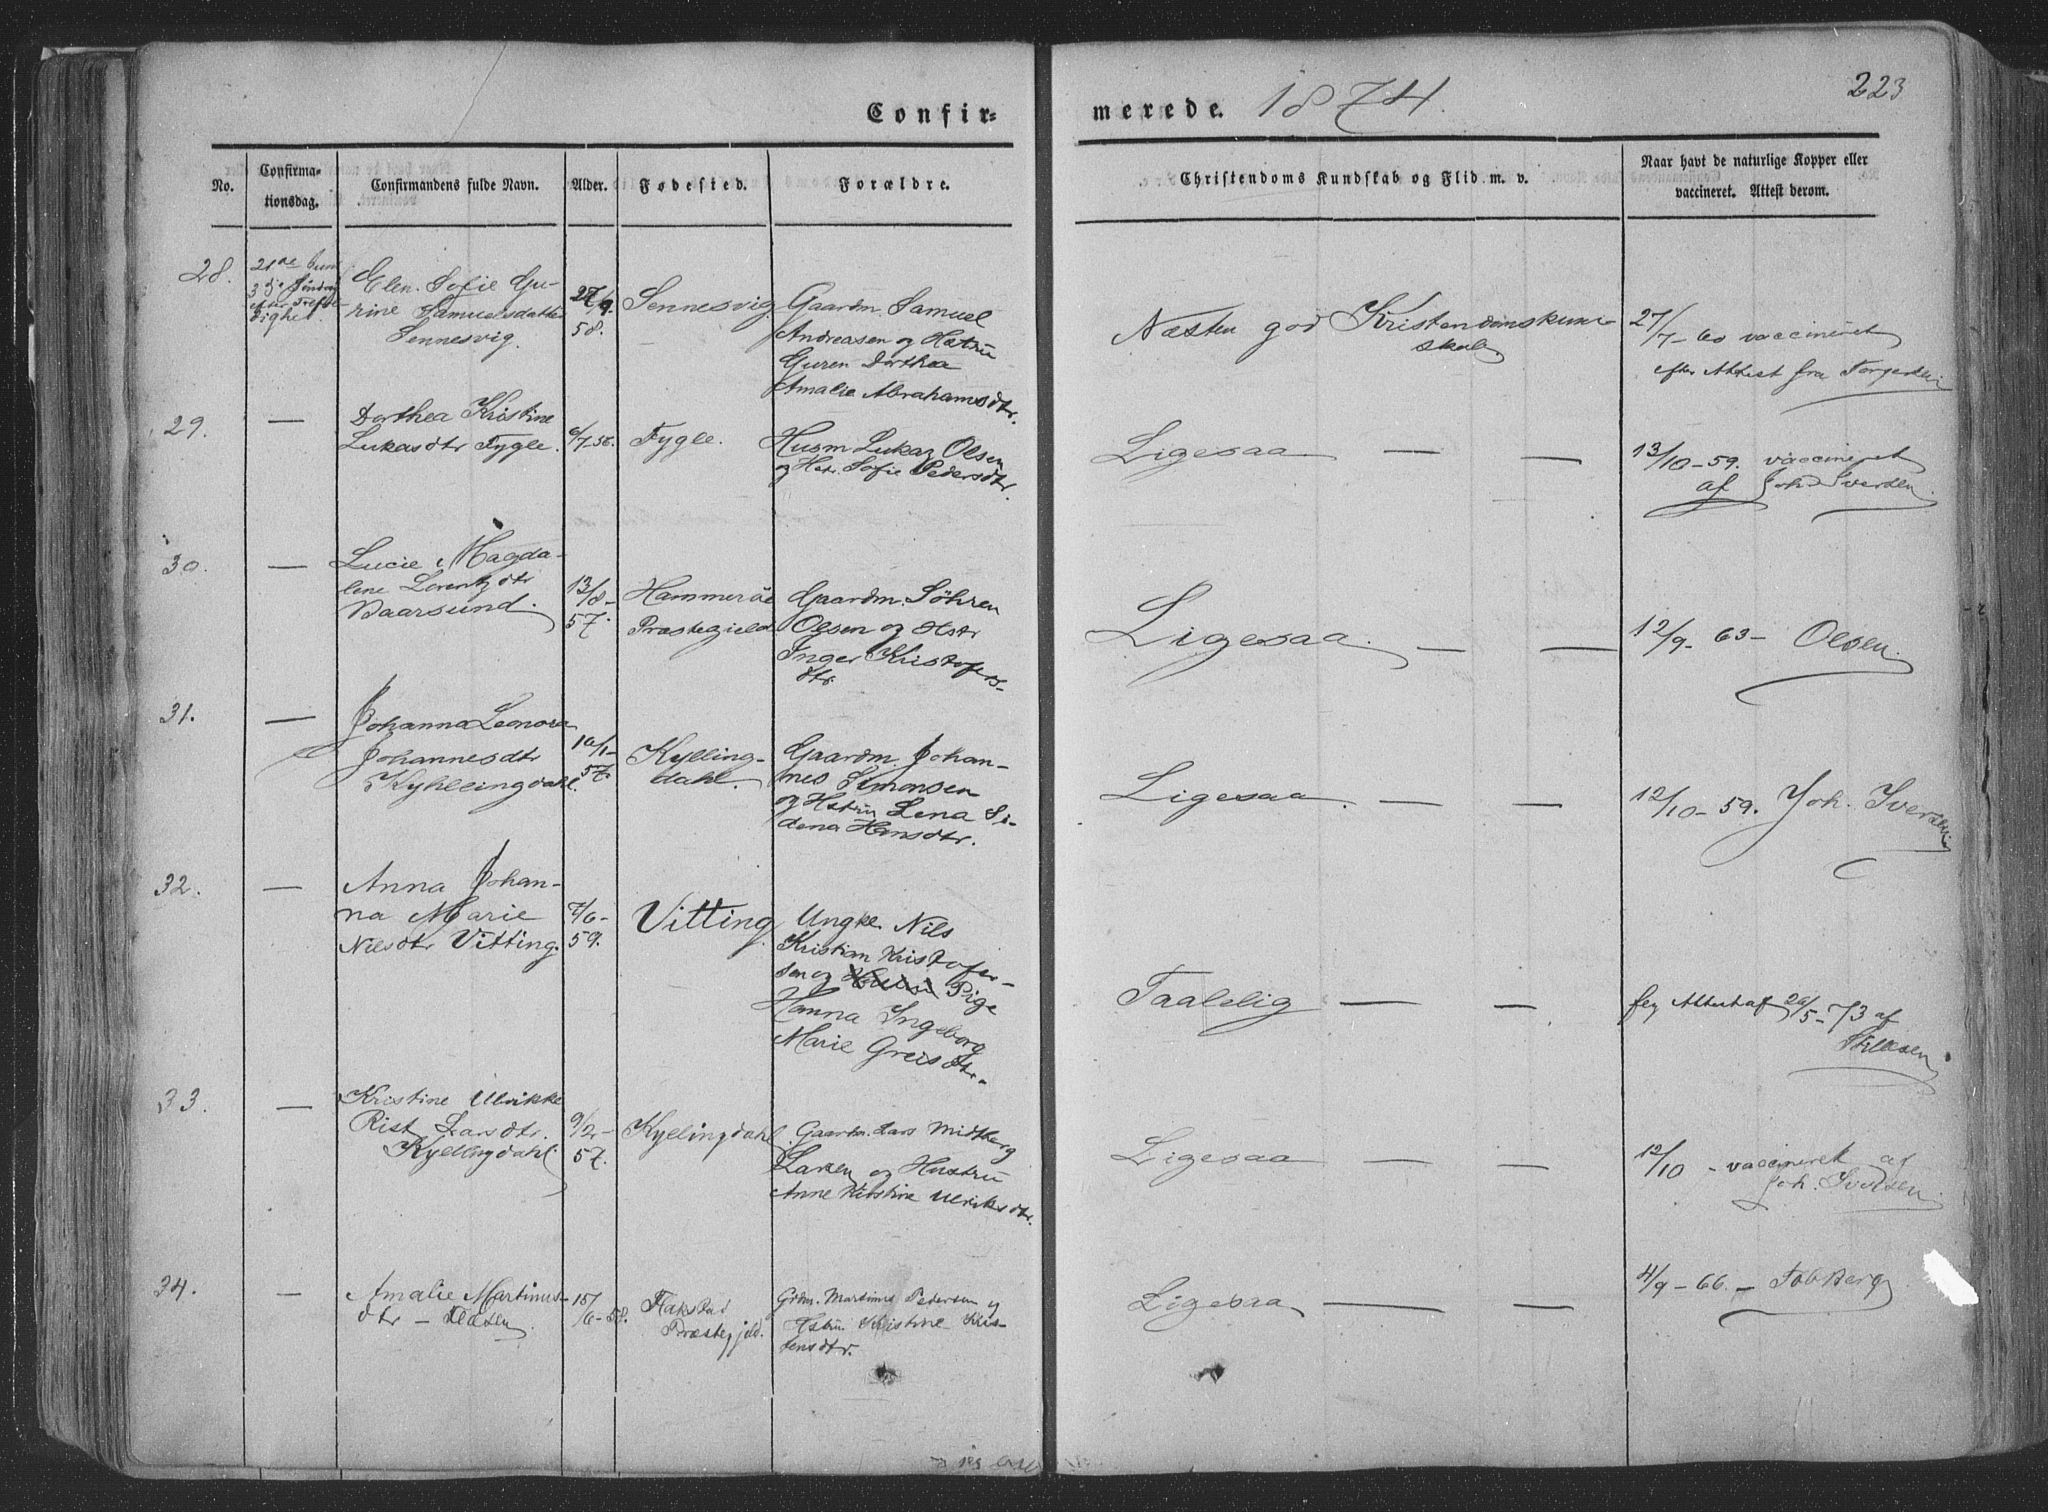 Confir-
merede. 1874.
223
No.
Confirma-
tionsdag.
Confirmandens fulde Navn.
Alder.
Fødested.
Forældre.
Christendoms Kundskab og Flid m. v.
Naar havt de naturlige Kopper eller
vaccineret. Attest derom.
28.
21de Juni
3de Søndag
efter Trefol-
dighed.
Elen Sofie Gu-
rine Samuelsdatter
Sennesvig.
27/9
58.
Sennesvig
Gaardm. Samuel
Andreasen og Hstru
Guren Dorthea
Amalie Abrahamsdtr.
Næsten god Kristendomskund-
skab
27/7-60 vaccineret
efter Attest fra
29.
—
Dorthea Kristine
Lukasdtr Fygle.
6/7 58.
Fygle.
Husm Lukas Olsen
og Hst. Sofie Pedersdtr.
Ligesaa — —
13/10-59. vaccineret
af Joh. Iversen.
30.
—
Lucie Magda-
lene Lorentzdtr
Vaarsund.
13/8-
57.
Hammerøe
Præstegield
Gaardm. Söhren
Olsen og Hstr
Inger Kristofers-
dtr.
Ligesaa. — —
12/9- 63- Olsen.
31.
—
Johanna Leonora
Johannesdtr
Kyhllingdahl.
10/1-
57.
Kylling-
dahl.
Gaardm. Johan-
nes Simonsen
og Hstru Lena Se-
dena Hansdtr.
Ligesaa. — —
12/10-59. Joh. Iversen
32.
—
Anna Johan-
na Marie
Nilsdtr Vitting.
7/6-
59.
Vitting
Ungke. Nils
Kristian Kristofer-
sen og Pige
Hanna Ingeborg
Marie Greisdtr.
Taalelig — —
Attest af 20/5-73 af
33.
—
Kristine Ulrikke
Rist Larsdtr.
Kyllingdahl.
9/2-
57.
Kyllingdahl.
Gaardm. Lars Midtberg
Larsen og Hustru
Anne Kirstine Ulriksdtr.
Ligesaa — —
12/10 - vaccineret af
Joh. Iversen
34.
—
Amalie Martinus-
dtr —
15/6-58.
Flakstad
Præstegjeld.
Grdm. Martinus Pedersen og
Hstru Kristine Kris-
tensdtr.
Ligesaa — —
4/9-66. —